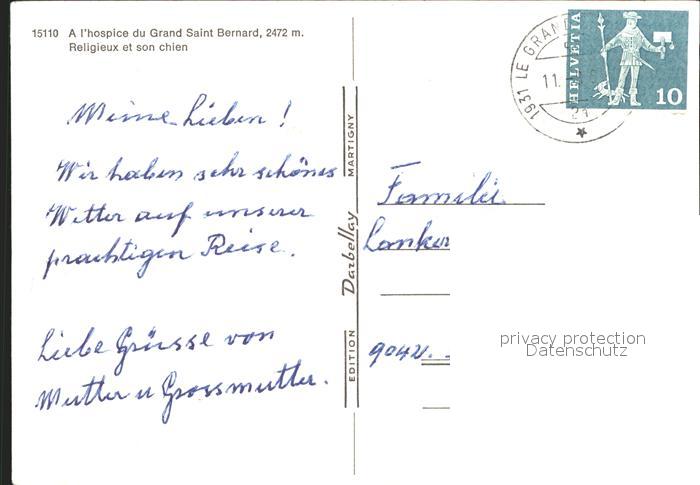 15110 A l'hospice du Grand Saint Bernard, 2472 m.
Religieux et son chien
Meine Lieben !
Wir haben sehr schönes
Wetter auf unserer
prachtigen Reise.
Liebe Grüsse von
Mutter u Grossmutter.
EDITION Darbellay MARTIGNY
1931 LE GRAND
11.
21
HELVETIA
10
Familie
Lanker
9042
privacy protection
Datenschutz